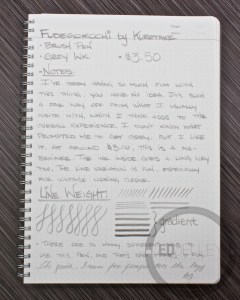 Fudegokochi by Kuretake
- Brush Pen
- Grey Ink
- $3.50
- Notes:
I've been having so much fun with
this thing, you have no idea. It's such
a far way off from what I normally
write with, which I think adds to the
overall experience. I don't know what
prompted me to get grey, but I like
it. At around $3.50, this is a no-
brainer. The ink inside goes a long way
too. The line variation is fun, especially
for outside normal things.
Line Weight:
gradient
- There are so many different
use this pen, and they